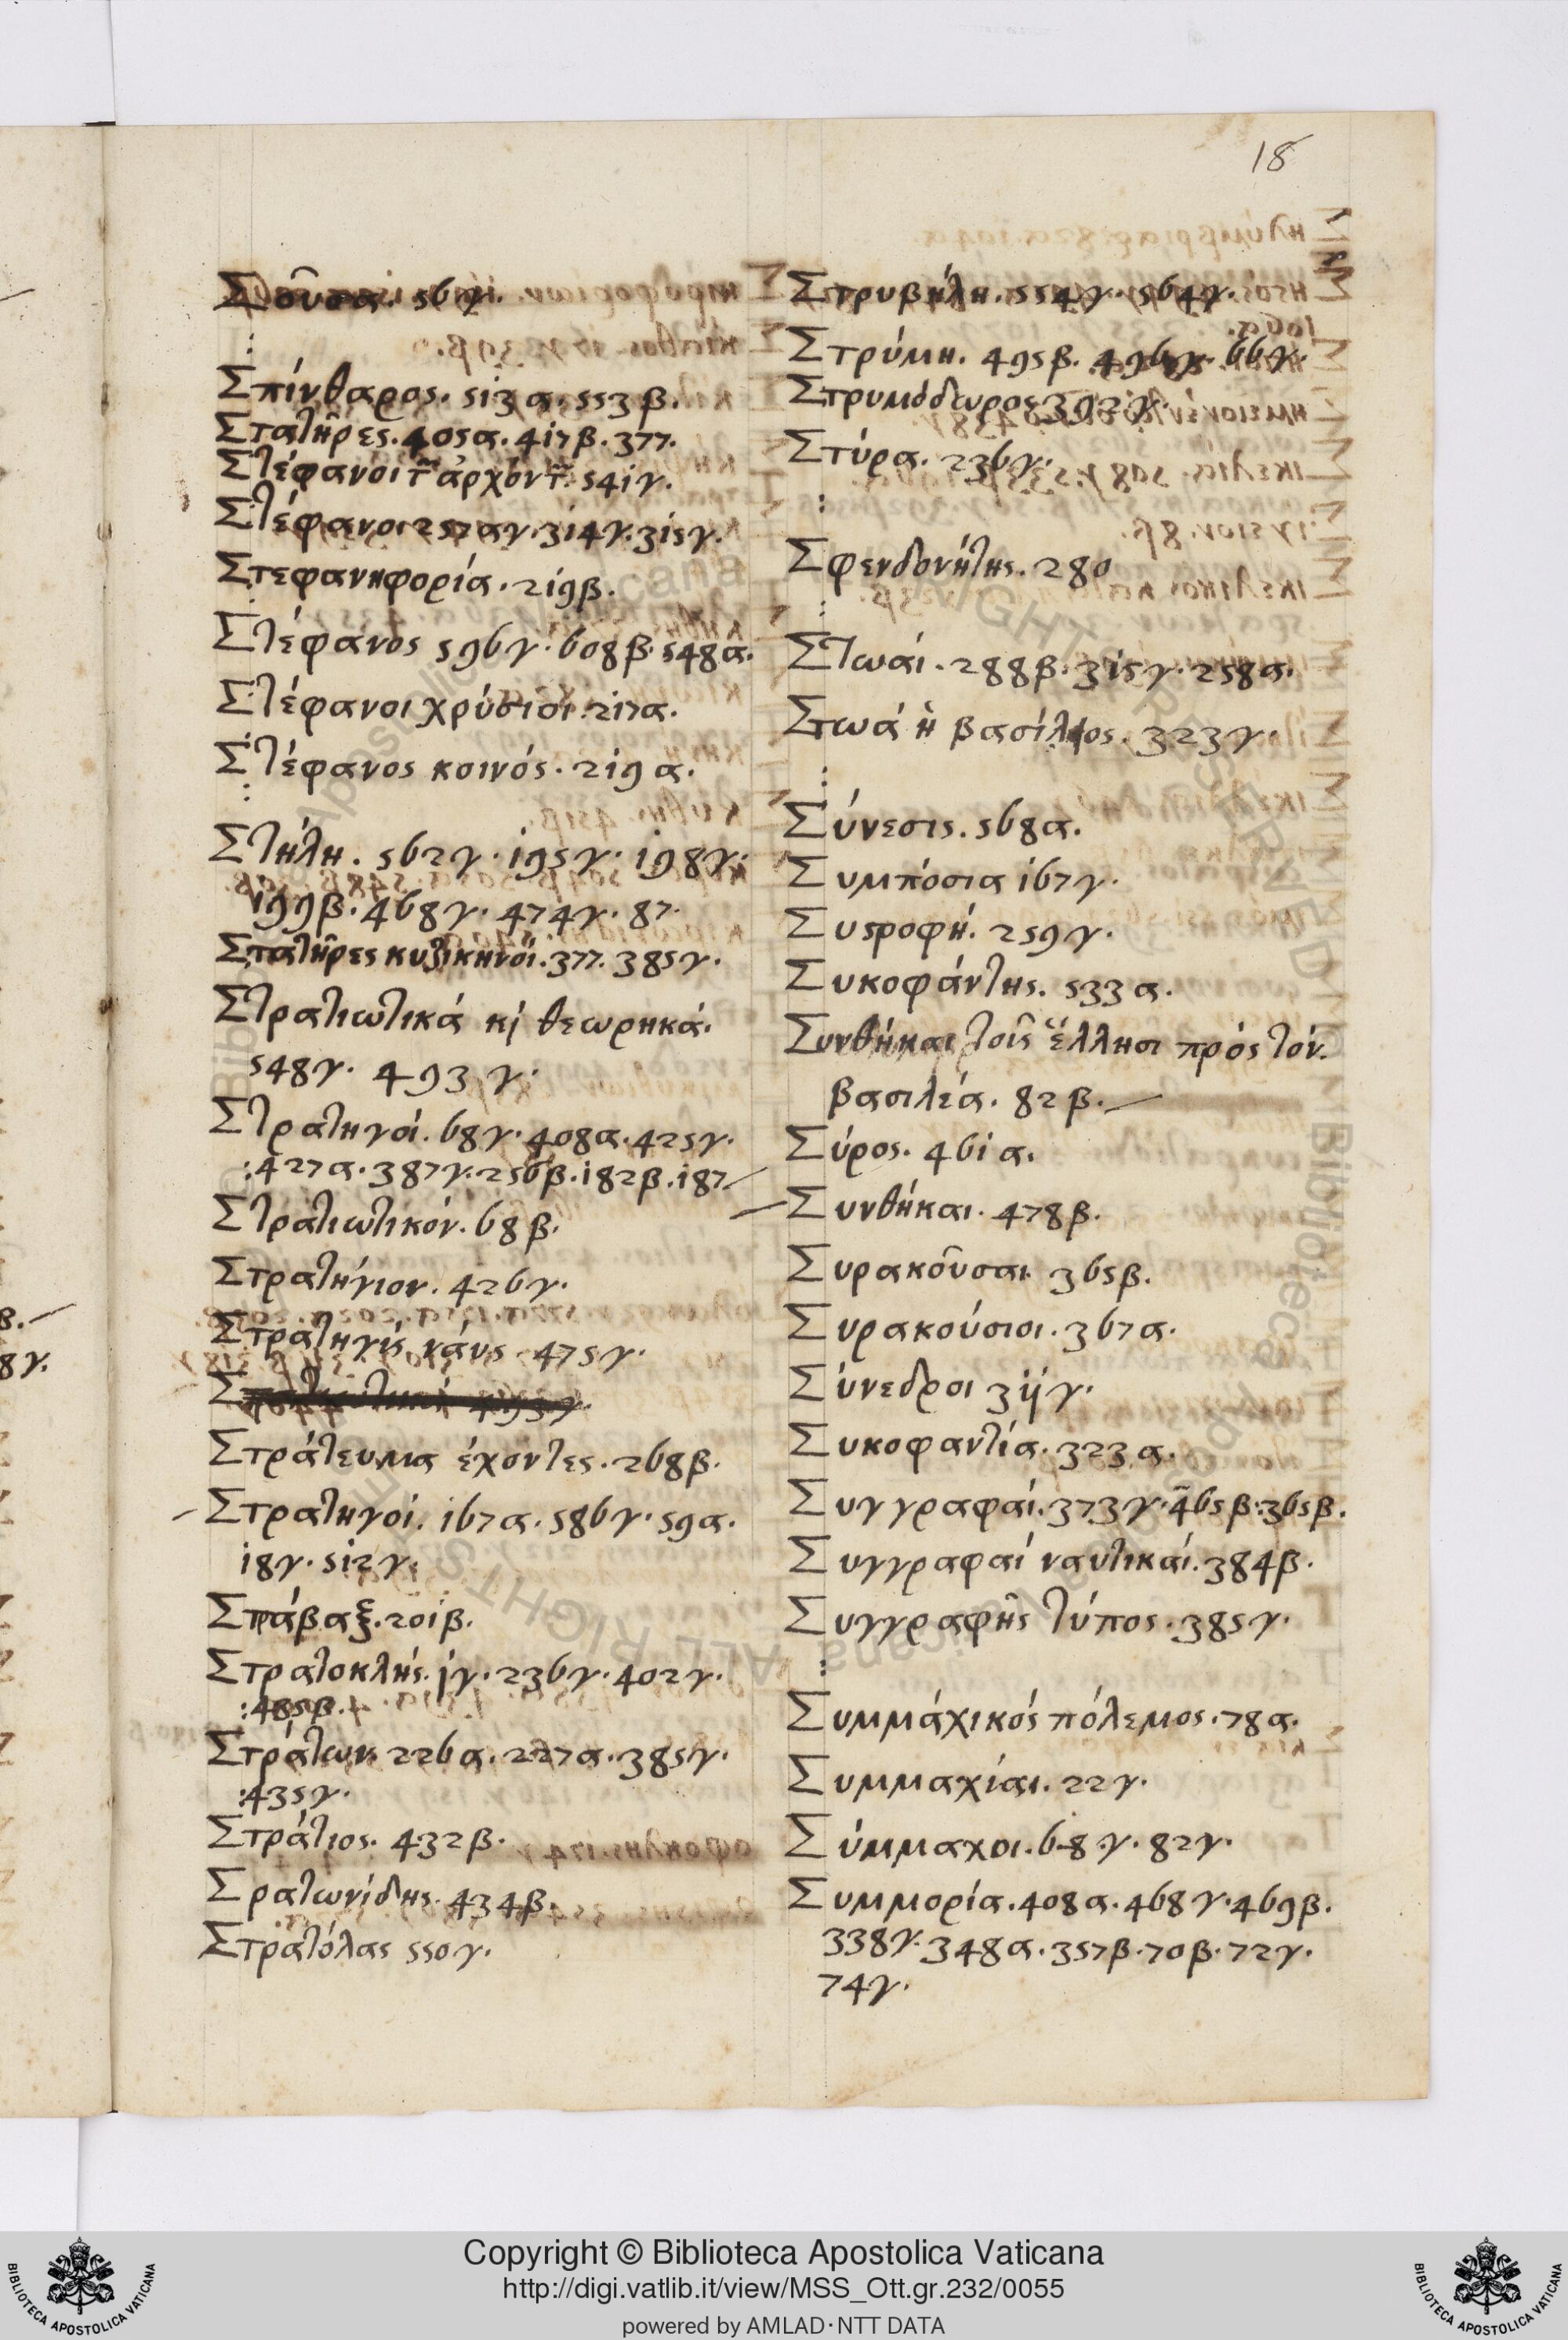 18
Σοῦσα. 567.
Σπίνθαρος. 513 α. 553 β.
Στατῆρες. 405 α. 417 β. 377.
Στέφανοι τ͂ ἀρχόντ͂ 541 γ.
Στέφανοι 257 αγ. 314 γ. 315 γ.
Στεφανηφορία. 219 β.
Στέφανος 596 γ. 608 β. 548 α.
Στέφανοι χρύσιοι. 217 α.
Στέφανος κοινός. 219 α.
Στήλη. 562 γ. 195 γ. 198 γ.
199 β. 468 γ. 474 γ. 87.
Στατῆρες κυζικηνοῖ. 377. 385 γ.
Στρατιωτικά κὶ θεωρηκά.
548 γ. 493 γ.
Στρατηγοί. 68 γ. 408 α. 425 γ.
:427 α. 387 γ. 256 β. 182 β. 187
Στρατιωτικόν. 68 β.
Στρατήγιον. 426 γ.
Στρατηγίς ναύς. 475 γ.
Στράτευμα ἐχόντες. 268 β.
Στρατηγοί. 167 α. 586 γ. 59 α.
18 γ. 512 γ.
Στράβαξ. 201 β.
Στρατοκλής. 11 γ. 236 γ. 402 γ.
:485 β.
Στράτων 226 α. 227 α. 385 γ.
:435 γ.
Στράτιος. 432 β.
Σρατωνίδης. 434 β.
Στρατόλας 550 γ.
Στρυβήλη. 554 γ. 564 γ.
Στρύμη. 495 β. 496 γ. 66 γ.
Στρυμόδωρος 392 γ.
Στύρα. 236 γ.
Σφενδονήτης. 280
Στωαί. 288 β. 315 γ. 258 α.
Στωά ἡ βασίλιος. 323 γ.
Σύνεσις. 568 α.
Συμπόσια 167 γ.
Συςροφή. 259 γ.
Συκοφάντης. 533 α.
Συνθήκαι τοῖς ἕλλησι πρός τόν.
βασιλεά. 82 β.
Σύρος. 461 α.
Συνθήκαι. 478 β.
Συρακοῦσαι 365 β.
Συρακούσιοι. 367 α.
Σύνεδροι 311 γ.
Συκοφαντία. 323 α.
Συγγραφαί. 373 γ. 465 β. 365 β.
Συγγραφαί ναυτικαί. 384 β.
Συγγραφῆς τύπος. 385 γ.
Συμμάχικός πόλεμος. 78 α.
Συμμαχίαι. 22 γ.
Σύμμαχοι. 68. γ. 82 γ.
Συμμορία. 408 α. 468 γ. 469 β.
338 γ. 348 α. 357 β. 70 β. 72 γ.
74 γ.
β.
8 γ.
Copyright © Biblioteca Apostolica Vaticana
http://digi.vatlib.it/view/MSS_Ott.gr.232/0055
powered by AMLAD·NTT DATA
BIBLIOTECA APOSTOLICA VATICANA
BIBLIOTECA APOSTOLICA VATICANA